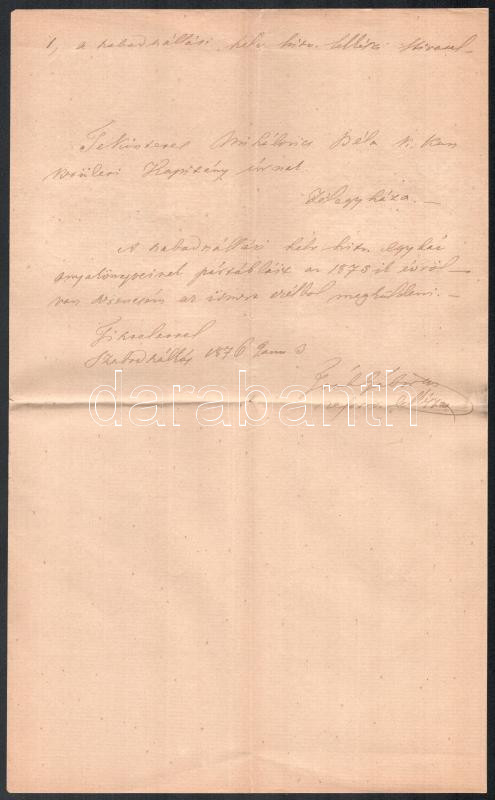 1, a szabadszállási helv. hitv. lelkészi hivatal
Tekintetes Mihálovics Béla n. kun
kerületi Kapitány úrnak
Félegyháza.-
A szabadszállási helv. hitv. egyház
anyakönyveinek az 1875ik évről
van szerencsém az ismert célból megküldeni.-
Tisztelettel
Szabadszállás 1876
darabanth